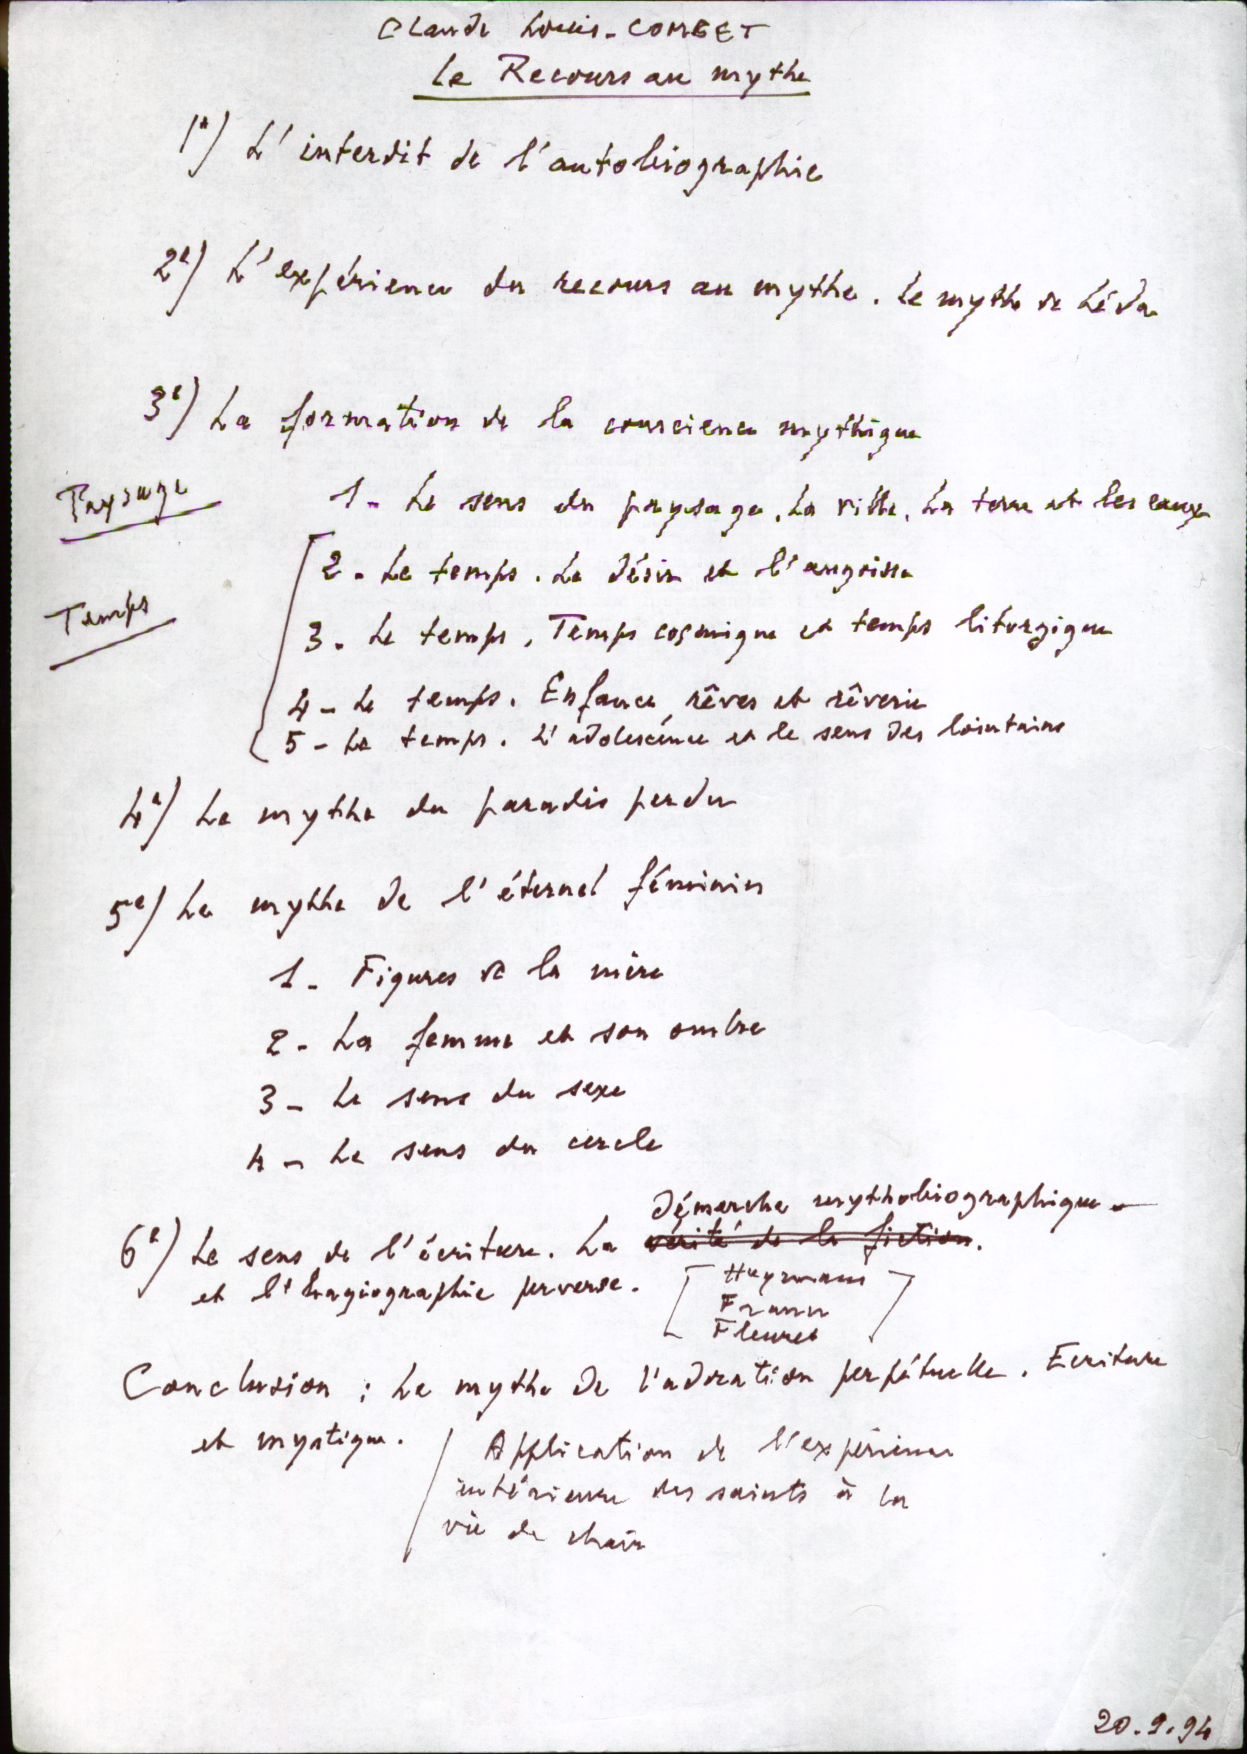 Claude Louis-COMBET
Le Recours au mythe
1°) L'interdit de l'autobiographie
2°) L'expérience du recours au mythe. Le mythe de Léda
3°) La formation de la conscience mythique
Paysage
1- Le sens du paysage. La ville. La terre et les eaux
2- Le temps. Le désir et l'angoisse
Temps
3- Le temps. Temps cosmique et temps liturgique
4- Le temps. Enfance, rêves et rêverie
5- Le temps. L'adolescence et le sens des lointains
4°) Le mythe du paradis perdu
5°) Le mythe de l'éternel féminin
1- Figures de la mère
2- La femme et son ombre
3- Le sens du sexe
4- Le sens du cercle
démarche mythobiographique
6°) Le sens de l'écriture. La vérité de la fiction.
et l'hagiographie perverse.
Huysmans
Fleuret
Conclusion : Le mythe de l'adoration perpétuelle. Ecriture
et mystique.
Application de l'expérience
intérieure des saints à la
vie de chair
20.9.94